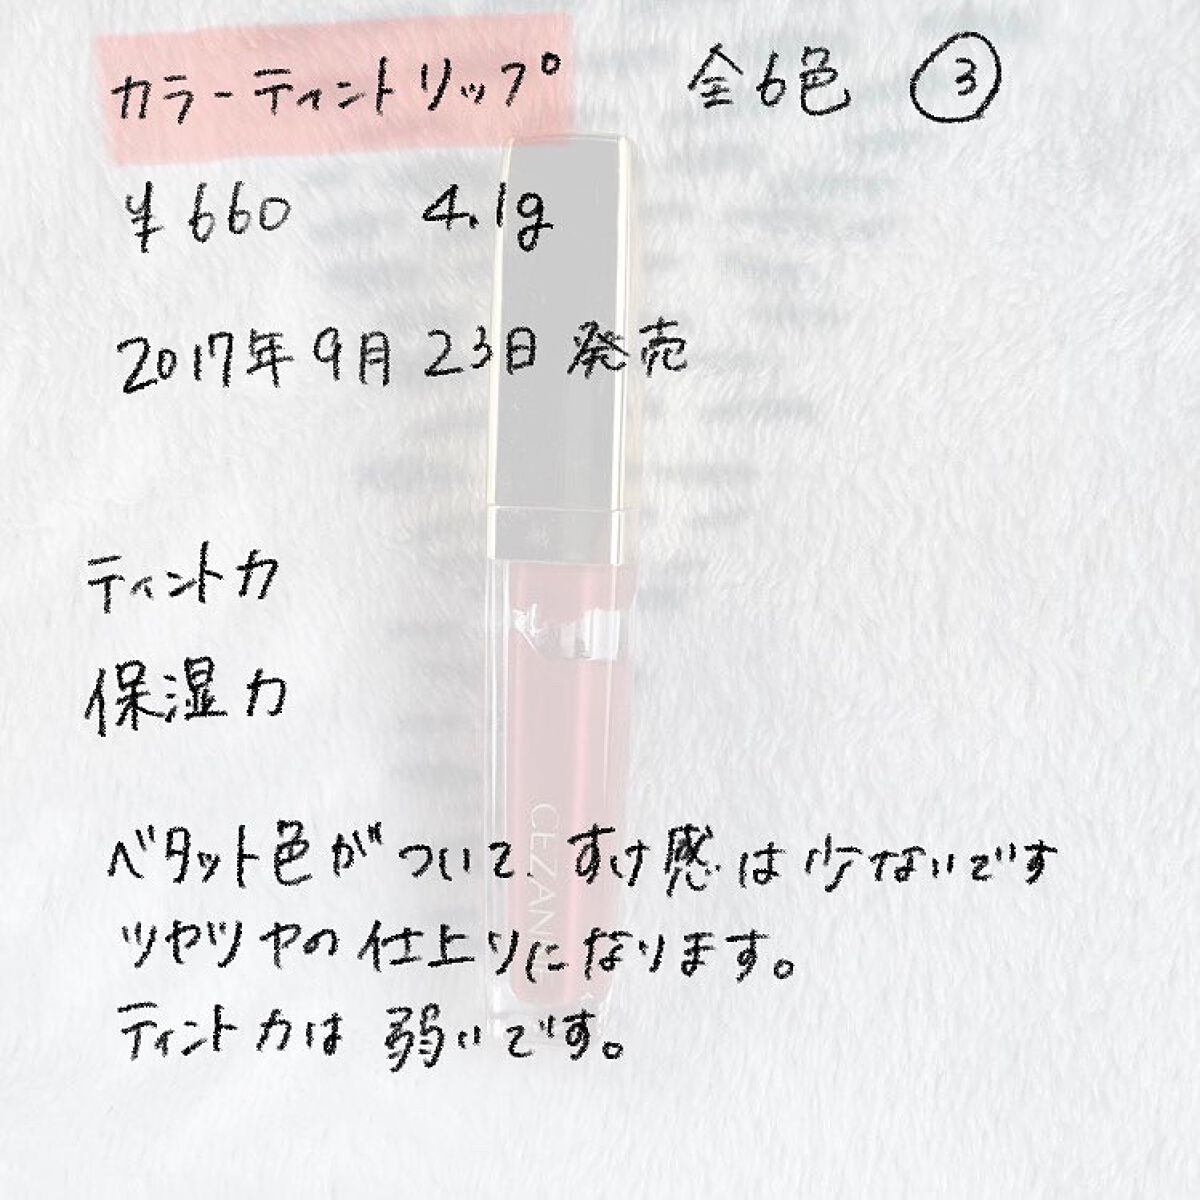 カラーティントリップ 全6色 ③
¥660 4.1g
2017年9月23日発売
ティント力
保湿力
ベタット色がついて、すけ感は少ないです
ツヤツヤの仕上りになります。
ティント力は弱いです。
CEZAN